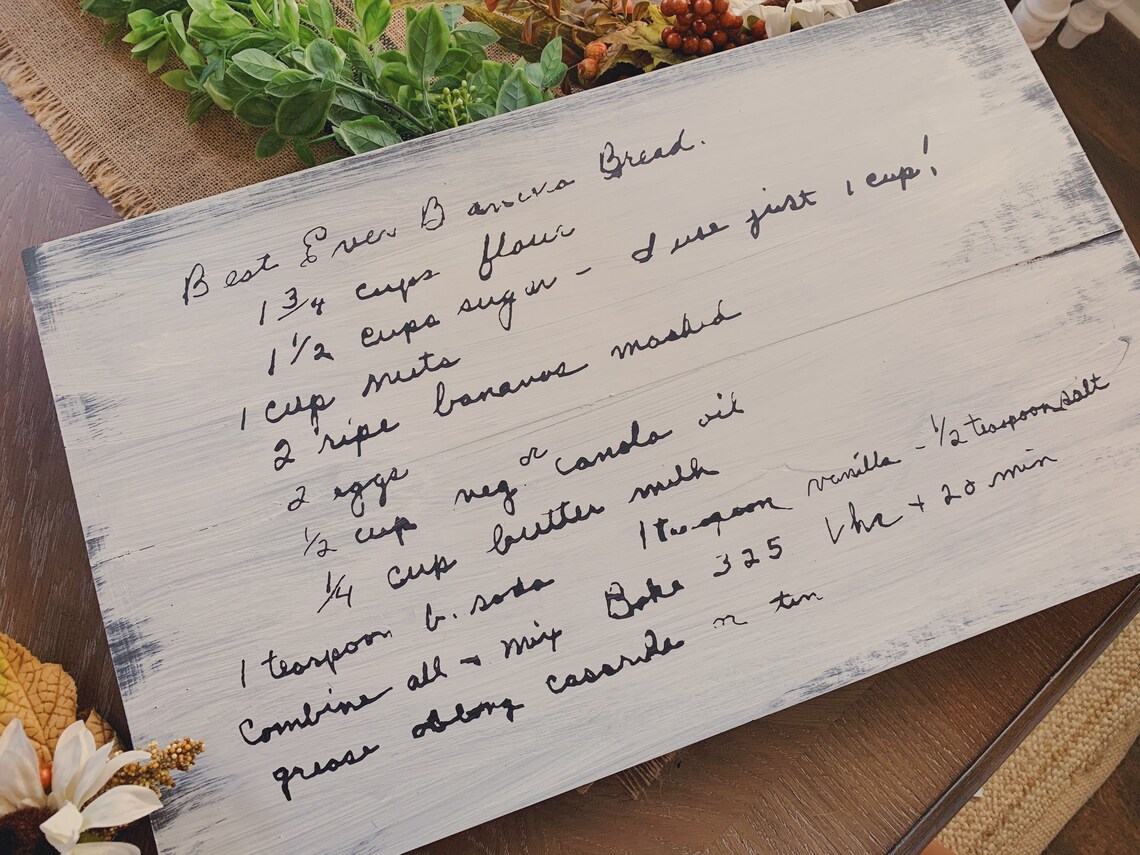 Best Ever Banana Bread.
1 3/4 cups flour
1 1/2 cups sugar - I use just 1 cup!
1 cup nuts
2 ripe bananas mashed
2 eggs
1/2 cup veg. or canola oil
1/4 cup butter milk
1 teaspoon b. soda 1 teaspoon vanilla - 1/2 teaspoon salt
Combine all + mix Bake 325 1 hr + 20 min
grease oblong casserole or tin